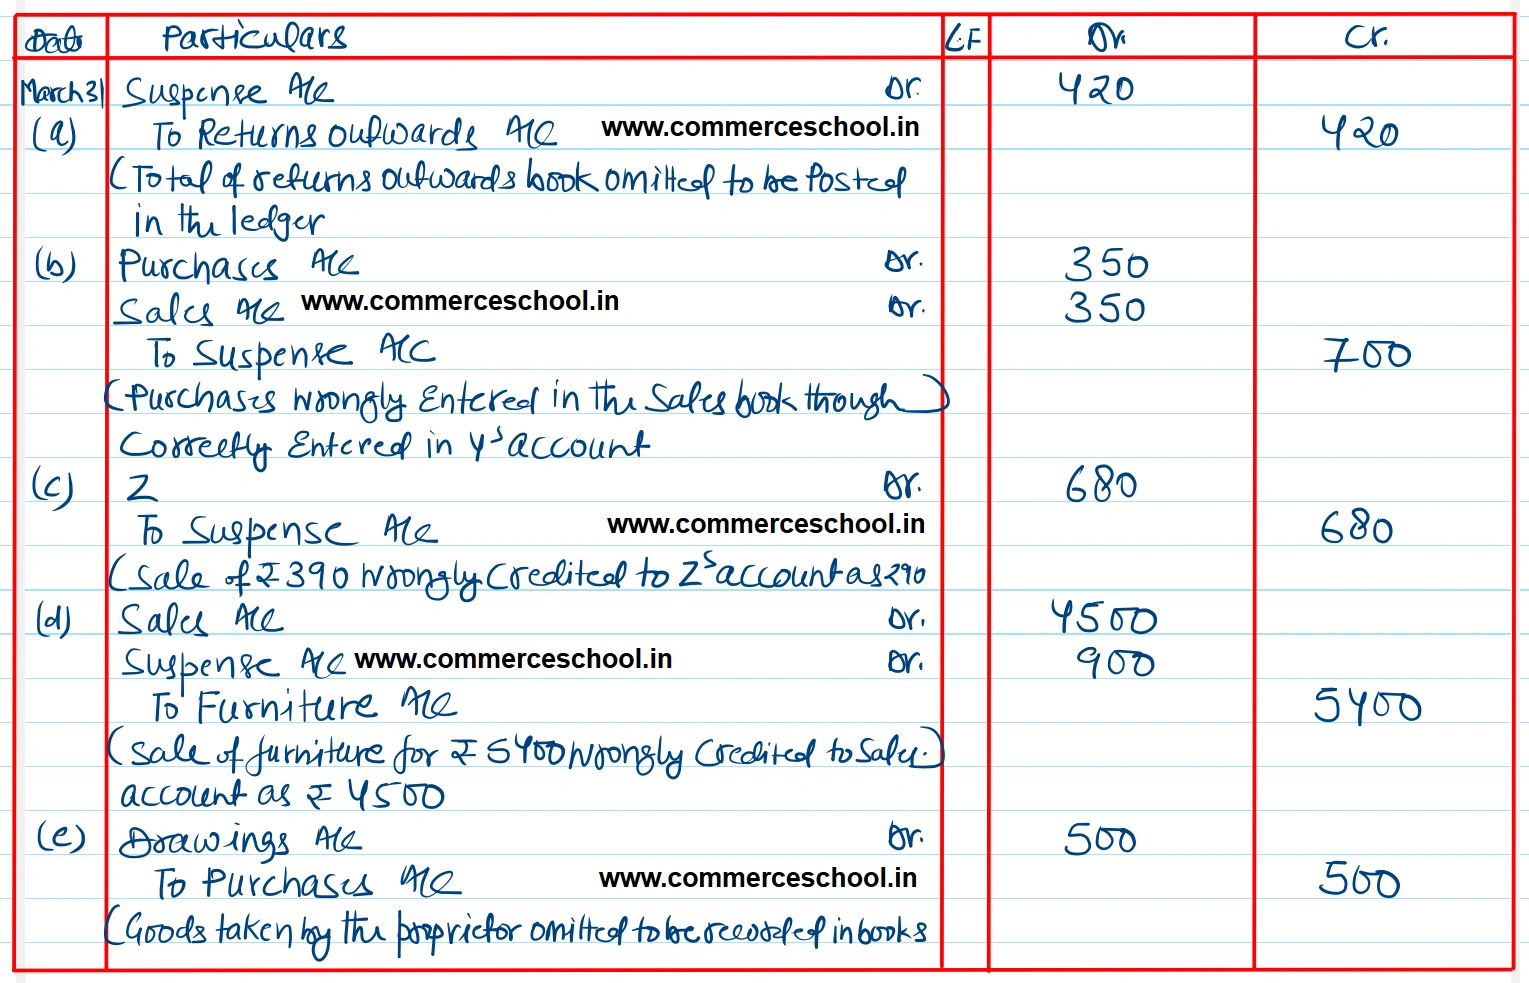 Date Particulars LF Dr. Cr.
March 31 Suspense A/c Dr. 420
(a) To Returns outwards A/c www.commerceschool.in 420
(Total of returns outwards book omitted to be Posted
in the ledger
(b) Purchases A/c Dr. 350
Sales A/c www.commerceschool.in Dr. 350
To Suspense A/C 700
(Purchases wrongly Entered in the Sales book though)
Correctly Entered in Y's account
(c) Z Dr. 680
To Suspense A/c www.commerceschool.in 680
(Sale of ₹ 390 wrongly Credited to Z's account as 290
(d) Sales A/c Dr. 4500
Suspense A/c www.commerceschool.in Dr. 900
To Furniture A/c 5400
(Sale of furniture for ₹ 5400 wrongly Credited to Sales.)
account as ₹ 4500
(e) Drawings A/c Dr. 500
To Purchases A/c www.commerceschool.in 500
(Goods taken by the proprietor omitted to be recorded in books